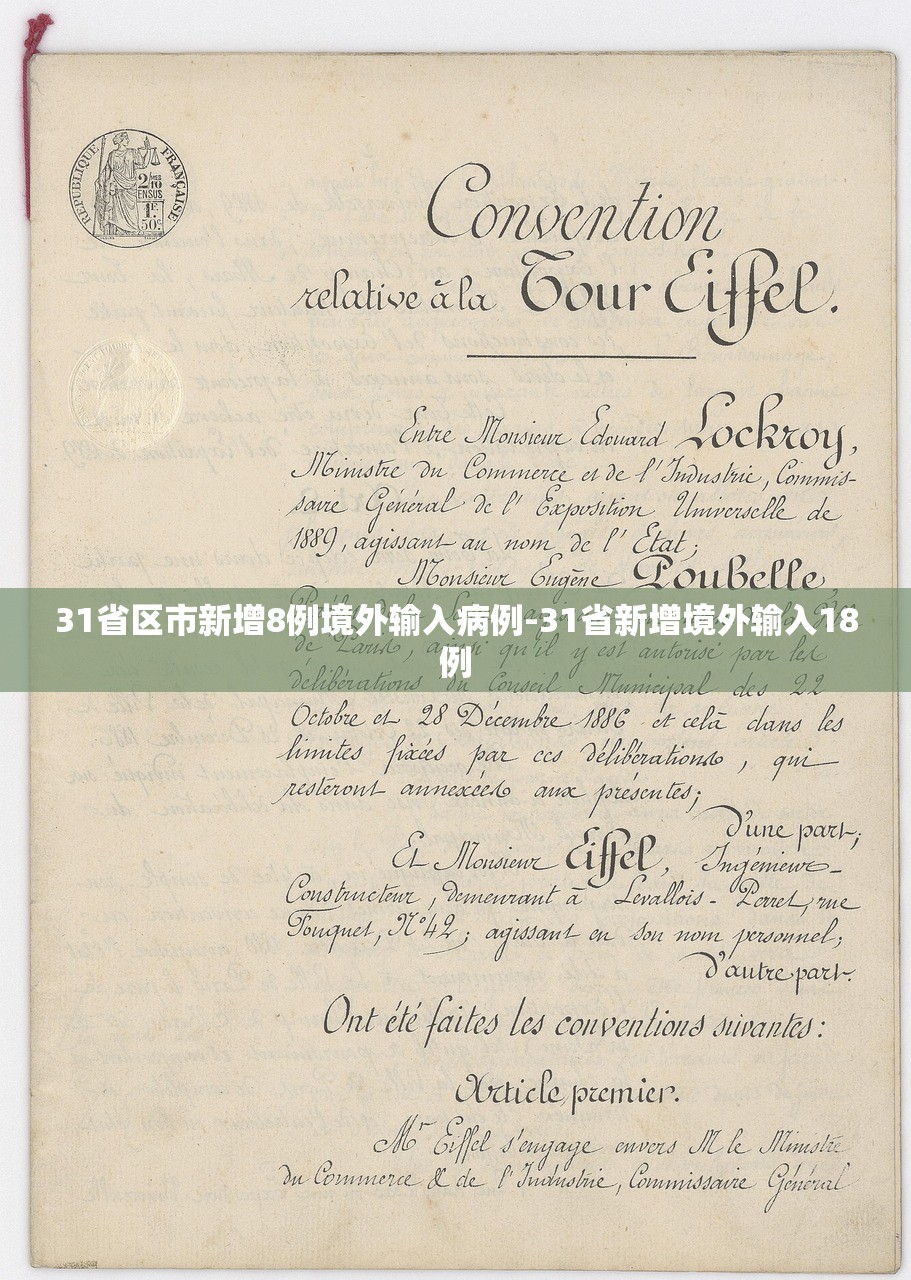 RÉPUBLIQUE FRANÇAISE
2/10
EN SUS
1F.
50c
Convention
relative à la Tour Eiffel.
Entre Monsieur Edouard Lockroy,
Ministre du Commerce et de l'Industrie, Commis-
saire Général de l'Exposition Universelle de
1889, agissant au nom de l'Etat;
Monsieur Eugène Poubelle,
31省区市新增8例境外输入病例-31省新增境外输入18
例
de Paris, ainsi qu'il y est autorisé par les
délibérations du Conseil Municipal des 22
Octobre et 28 Décembre 1886 et celà dans les
limites fixées par ces délibérations, qui
resteront annexées aux présentes;
d'une part;
Et Monsieur Eiffel, Ingénieur-
Constructeur, demeurant à Levallois-Perret, rue
Fouquet, N°42; agissant en son nom personnel;
d'autre part.
Ont été faites les conventions suivantes:
Article premier.
Mr Eiffel s'engage envers M le Ministre
du Commerce & de l'Industrie, Commissaire Général